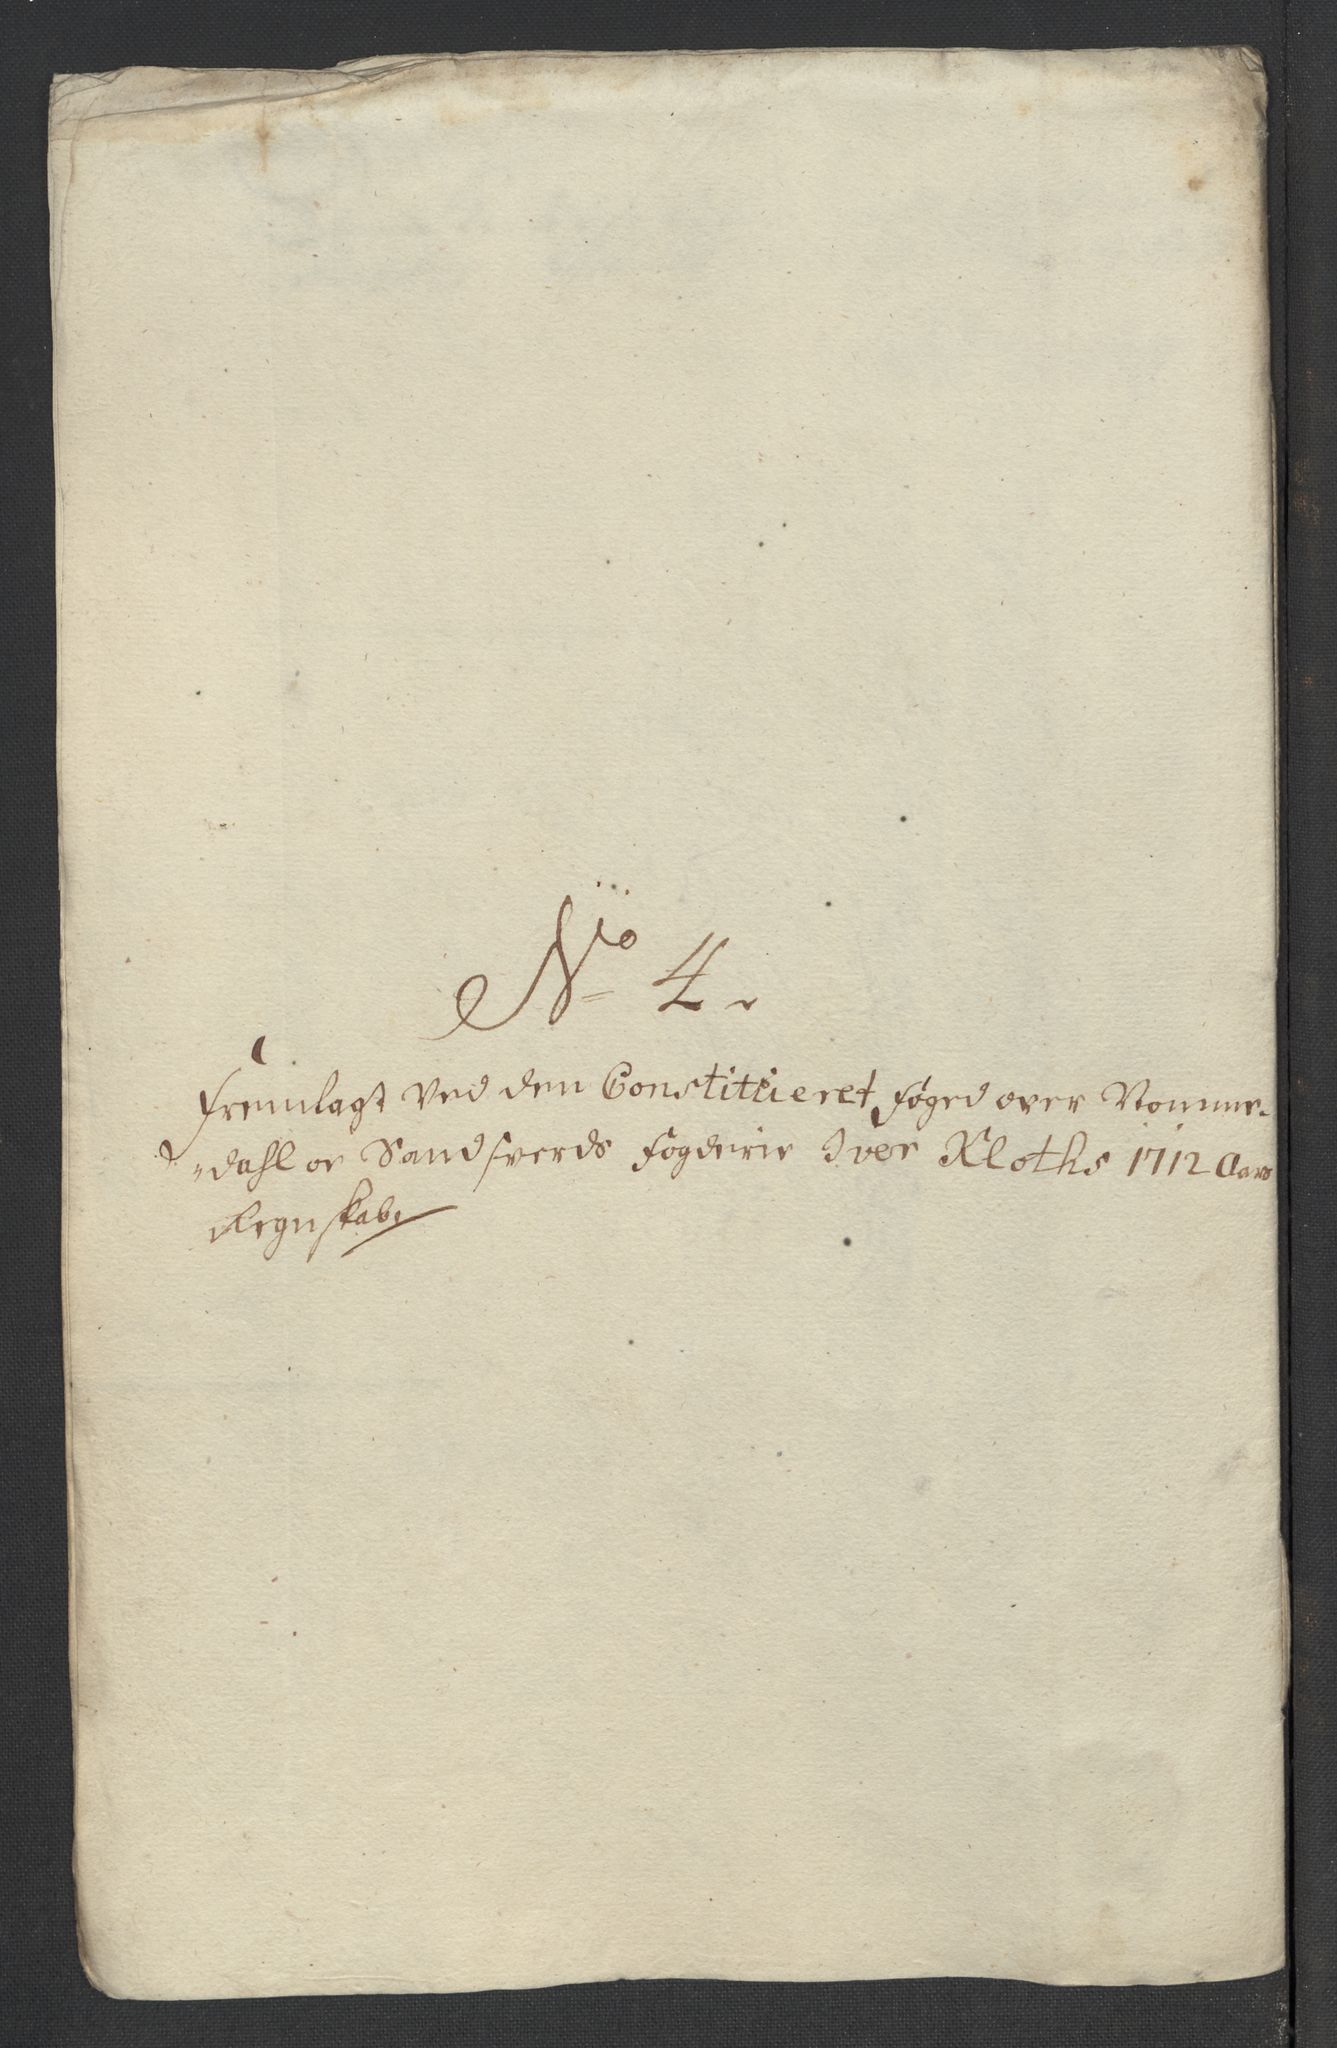 No 4.
Fremlagt Ved den Constitueret foged over Nomme-
dahl oc Sandsverds fogderie Iver Kloths 1712 Aars
Regnskab.